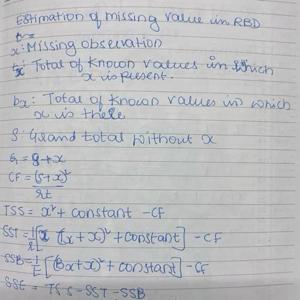 Estimation of missing value in RBD
x: Missing observation
tx: Total of known values in which
x is present.
bx: Total of known values in which
x is there
S: Grand total without x
G = g+x
CF = (s+x)²
rt
TSS = x² + constant - CF
SST = 1/r [(tx+x)² + constant] - CF
SSB = 1/t [(Bx+x)² + constant] - CF
SSE = TSS - SST - SSB